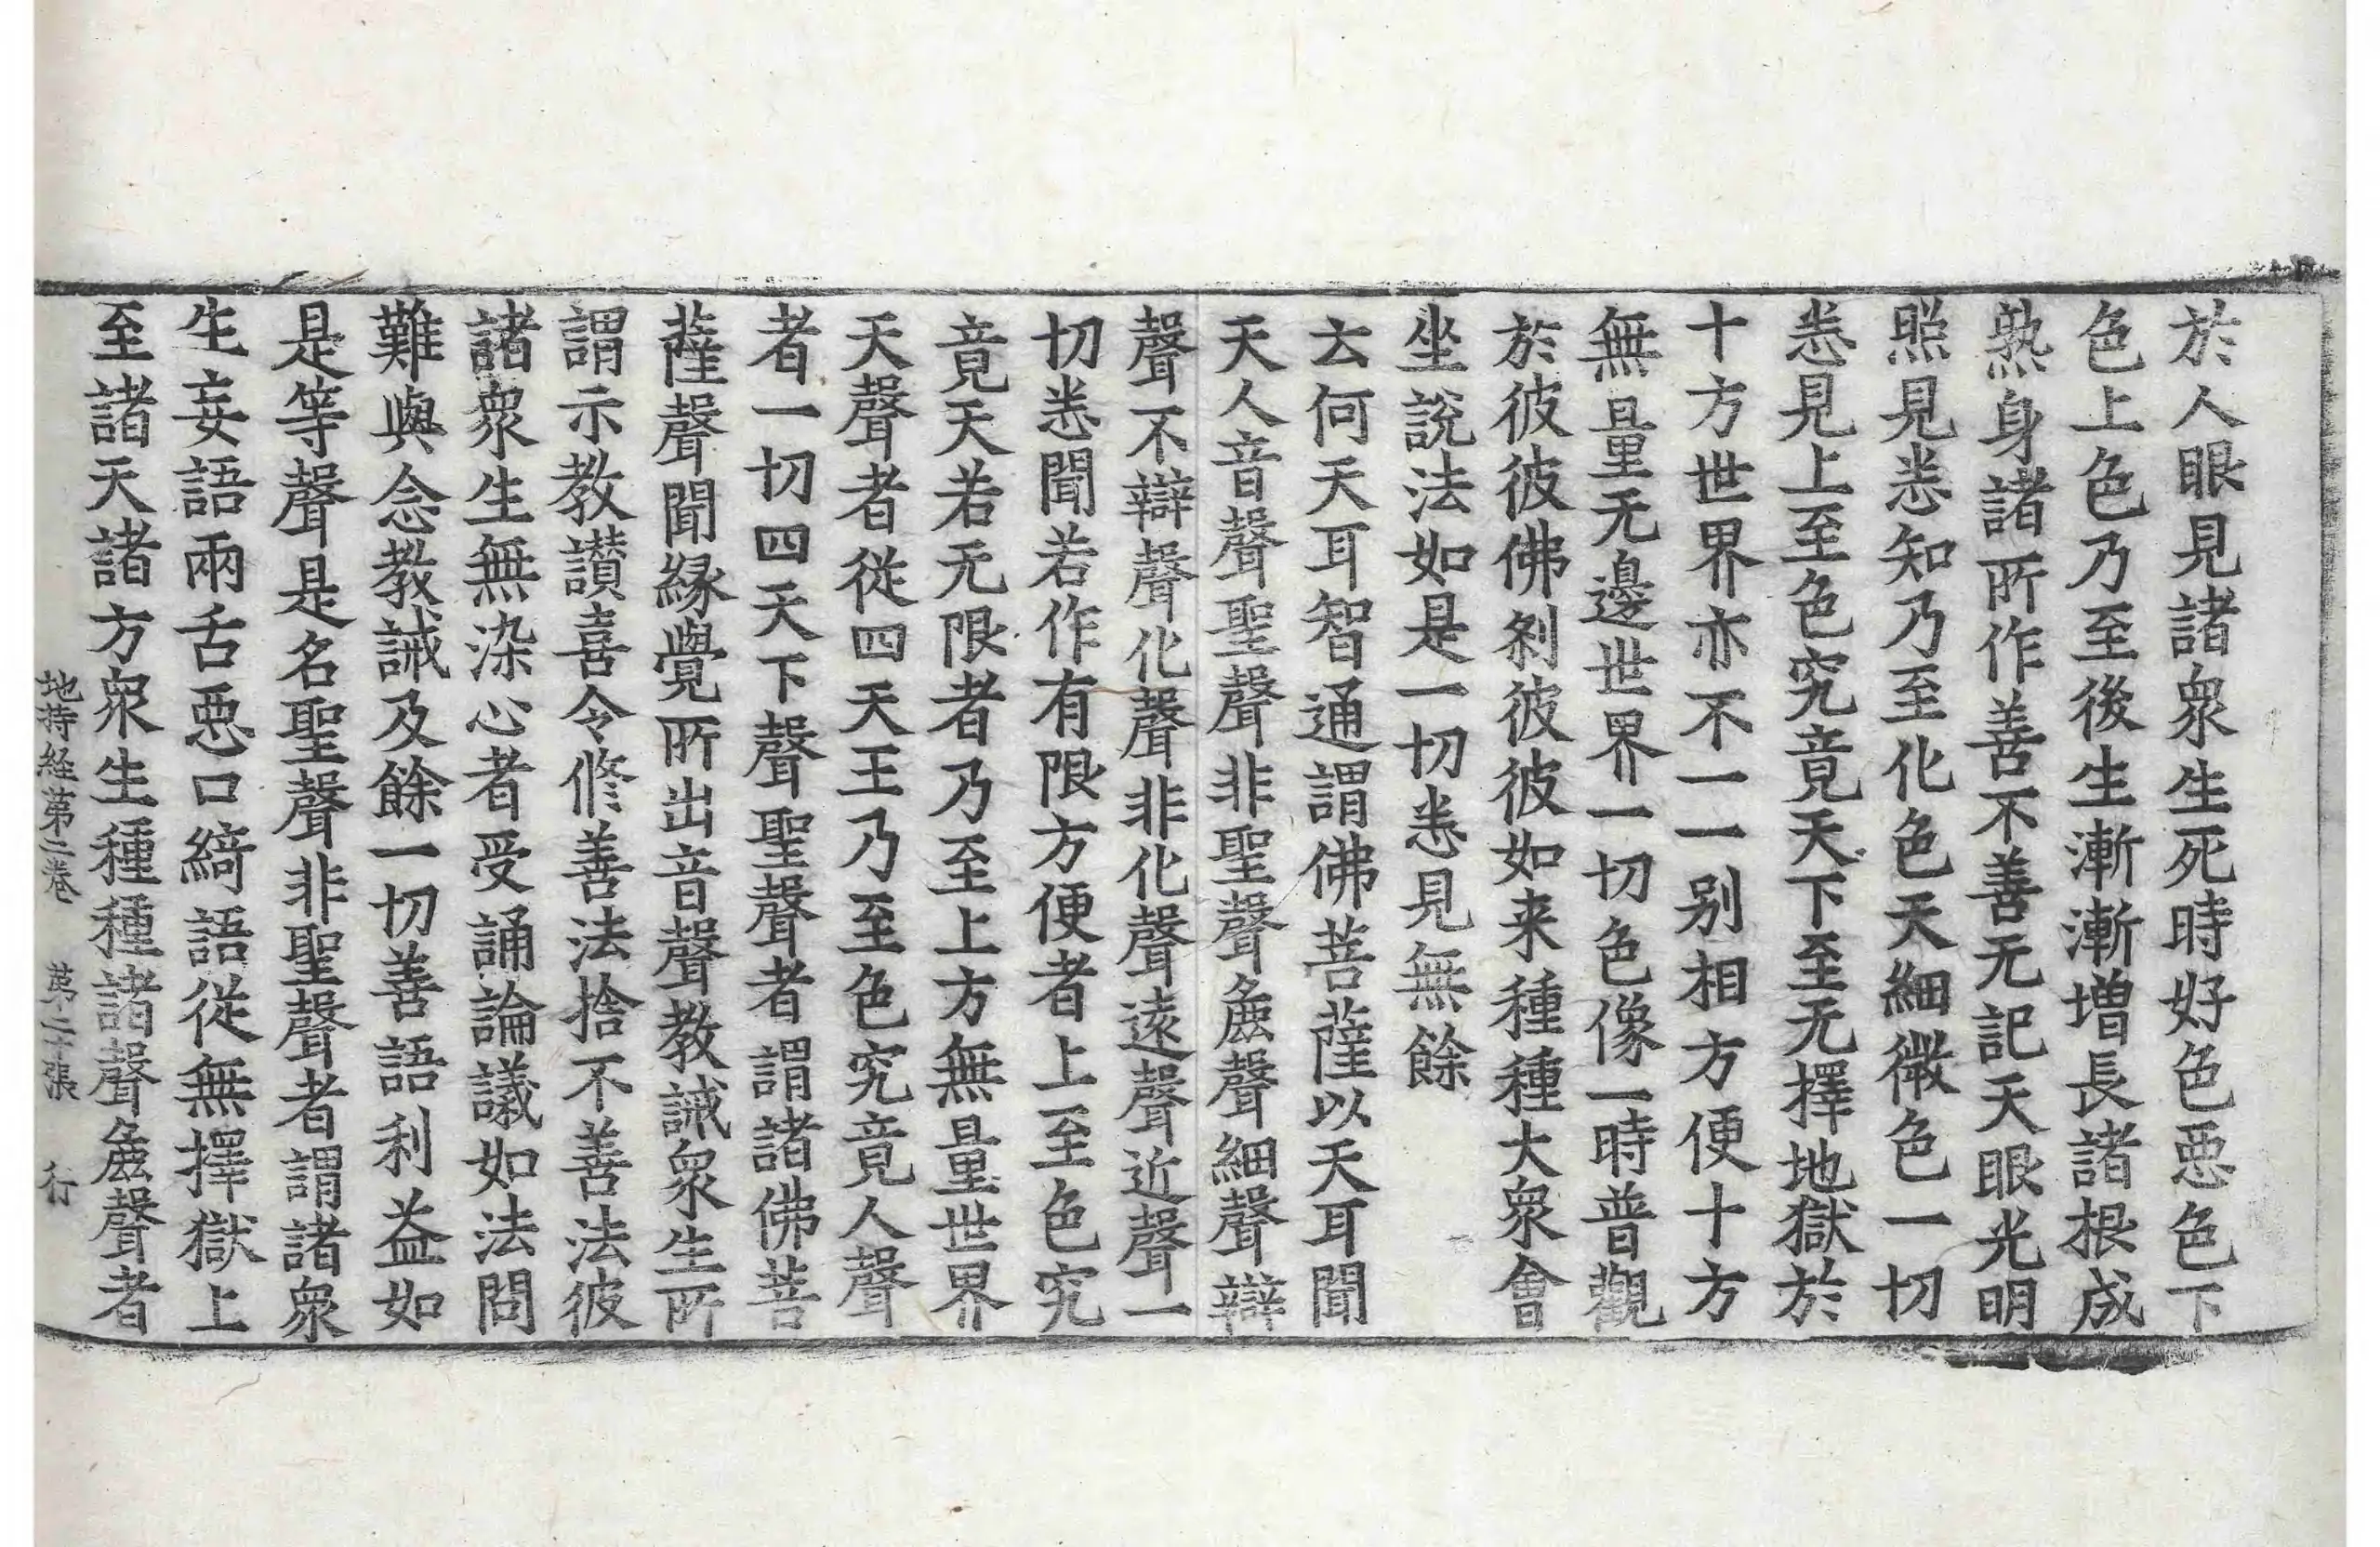 於人眼見諸衆生死時好色惡色下
色上色乃至後生漸漸增長諸根成
熟身諸所作善不善无記天眼光明
照見悉知乃至化色天細微色一切
悉見上至色究竟天下至无擇地獄於
十方世界亦不一一别相方便十方
無量无邊世界一切色像一時普觀
於彼彼佛刹彼彼如来種種大衆會
坐說法如是一切悉見無餘
云何天耳智通謂佛菩薩以天耳聞
天人音聲聖聲非聖聲麁聲細聲辯
聲不辯聲化聲非化聲遠聲近聲一
切悉聞若作有限方便者上至色究
竟天若无限者乃至上方無量世界
天聲者從四天王乃至色究竟人聲
者一切四天下聲聖聲者謂諸佛菩
薩聲聞縁覺所出音聲教誡衆生所
謂示教讃喜令修善法捨不善法彼
諸衆生無染心者受誦論議如法問
難與念教誡及餘一切善語利益如
是等聲是名聖聲非聖聲者謂諸衆
生妄語兩舌惡口綺語從無擇獄上
至諸天諸方衆生種種諸聲麁聲者
地持経第二巻　第二十張　行